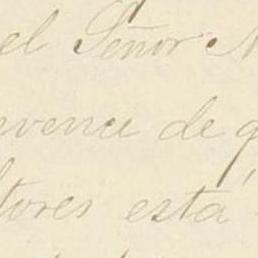 el Señor
vence de q
tores está